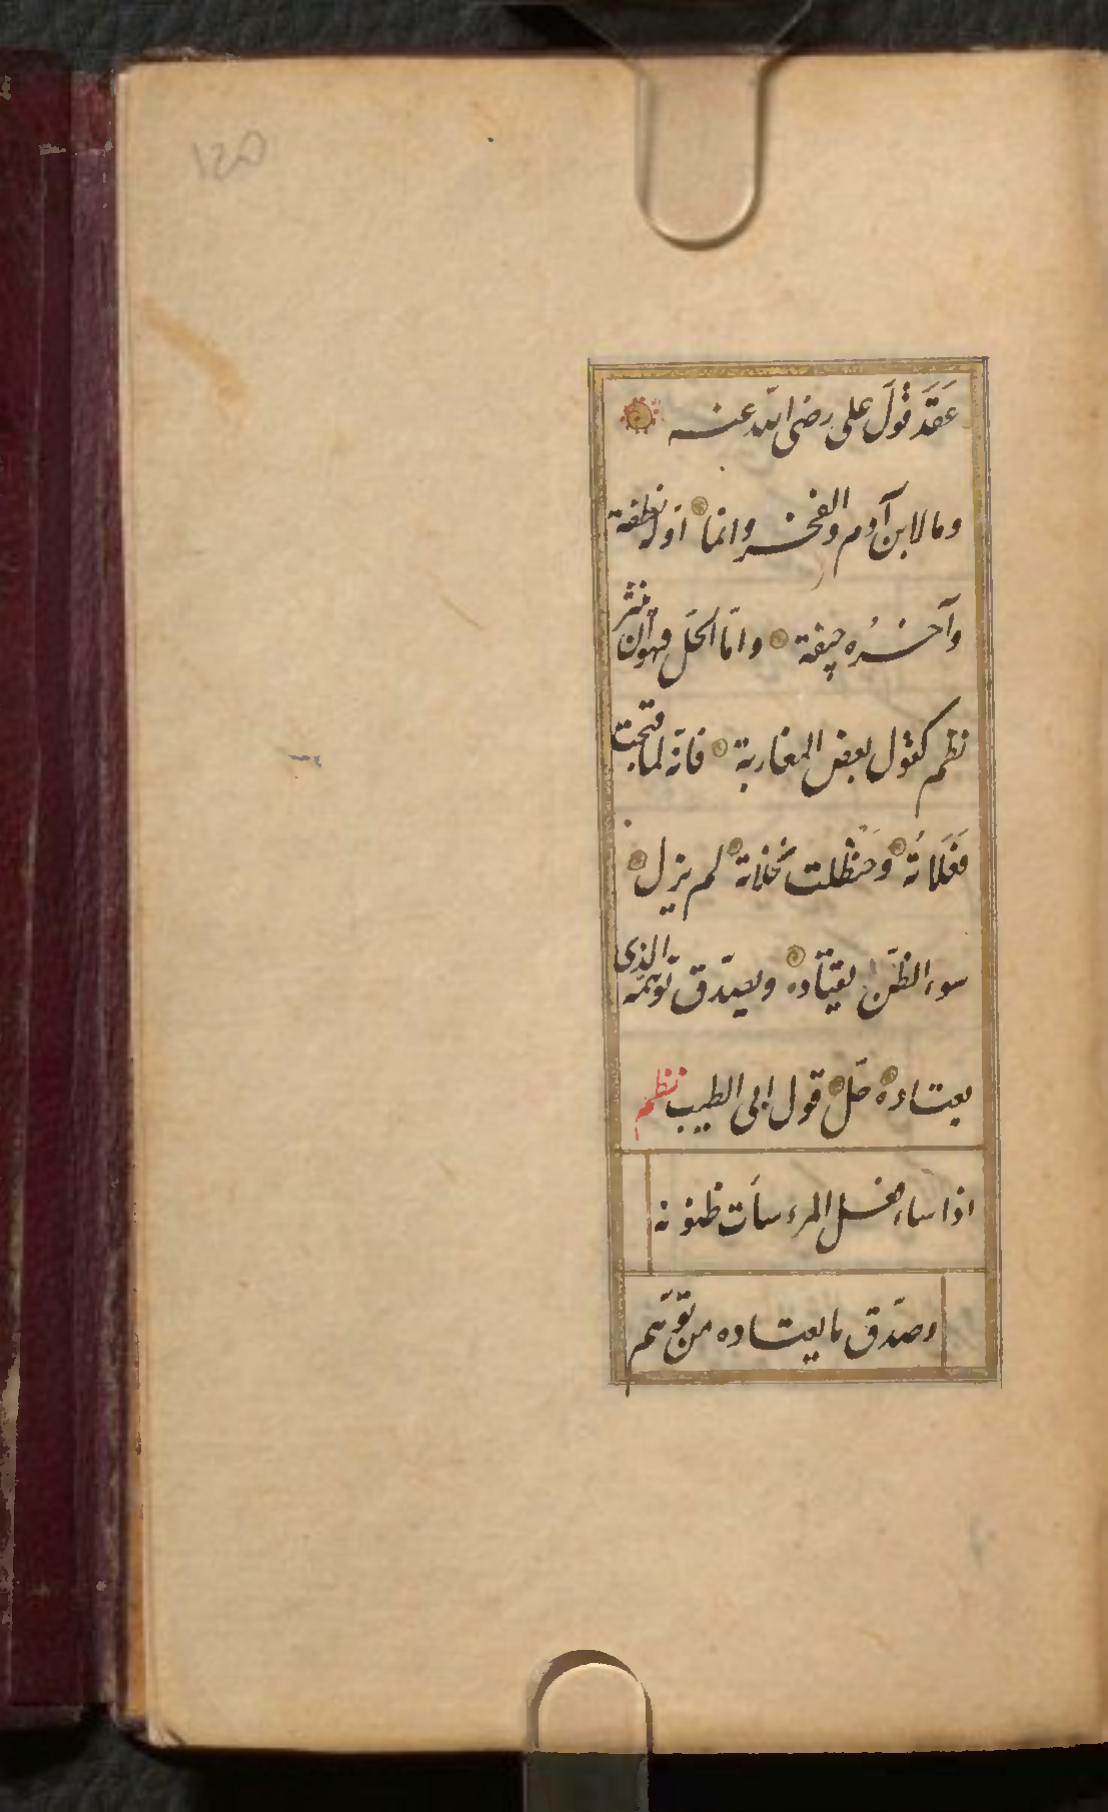 عَقَدَ قَوْلَ على رضى الله عنه
وما لابن آدم والفخر وانما اوله نطفة
وآخرُه جيفة واما الحَل فهو ان ينثر
نظم كقول بعض المغاربة فانه لما قبحت
فَعَلَاتُه وحنظلت نَخلاته لم يزل
سوء الظن يقتاده ويصدق توهمه الذى
يعتاده حَلّ قول ابى الطيب نظم
اذا ساء فعل المرء ساَت ظنونه
وصدّق ما يعتاده من توهّم